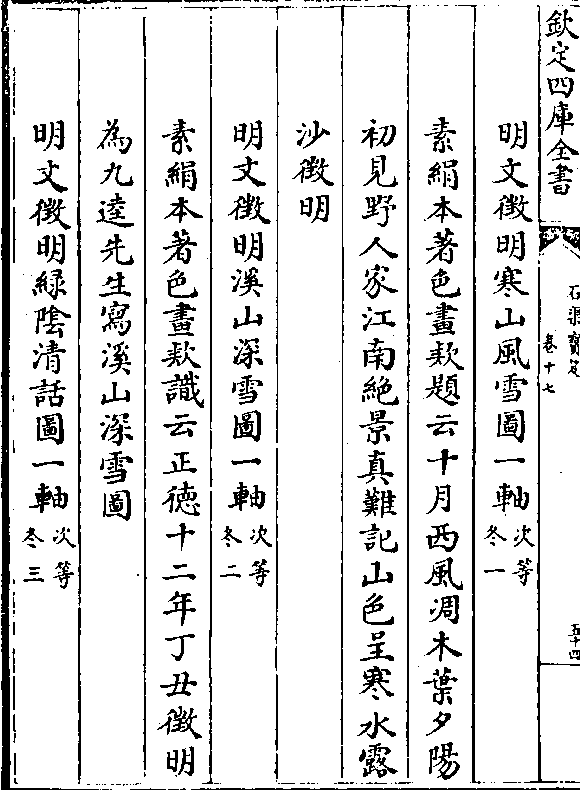 欽定四庫全書
石渠寶笈
卷十七
五十四
明文徴明寒山風雪圖一軸次等冬一
素絹本著色畫欵題云十月西風凋木葉夕陽
初見野人家江南絶景真難記山色呈寒水露
沙徴明
明文徴明溪山深雪圖一軸次等冬二
素絹本著色畫欵識云正德十二年丁丑徴明
為九逵先生寫溪山深雪圖
明文徴明緑陰清話圖一軸次等冬三